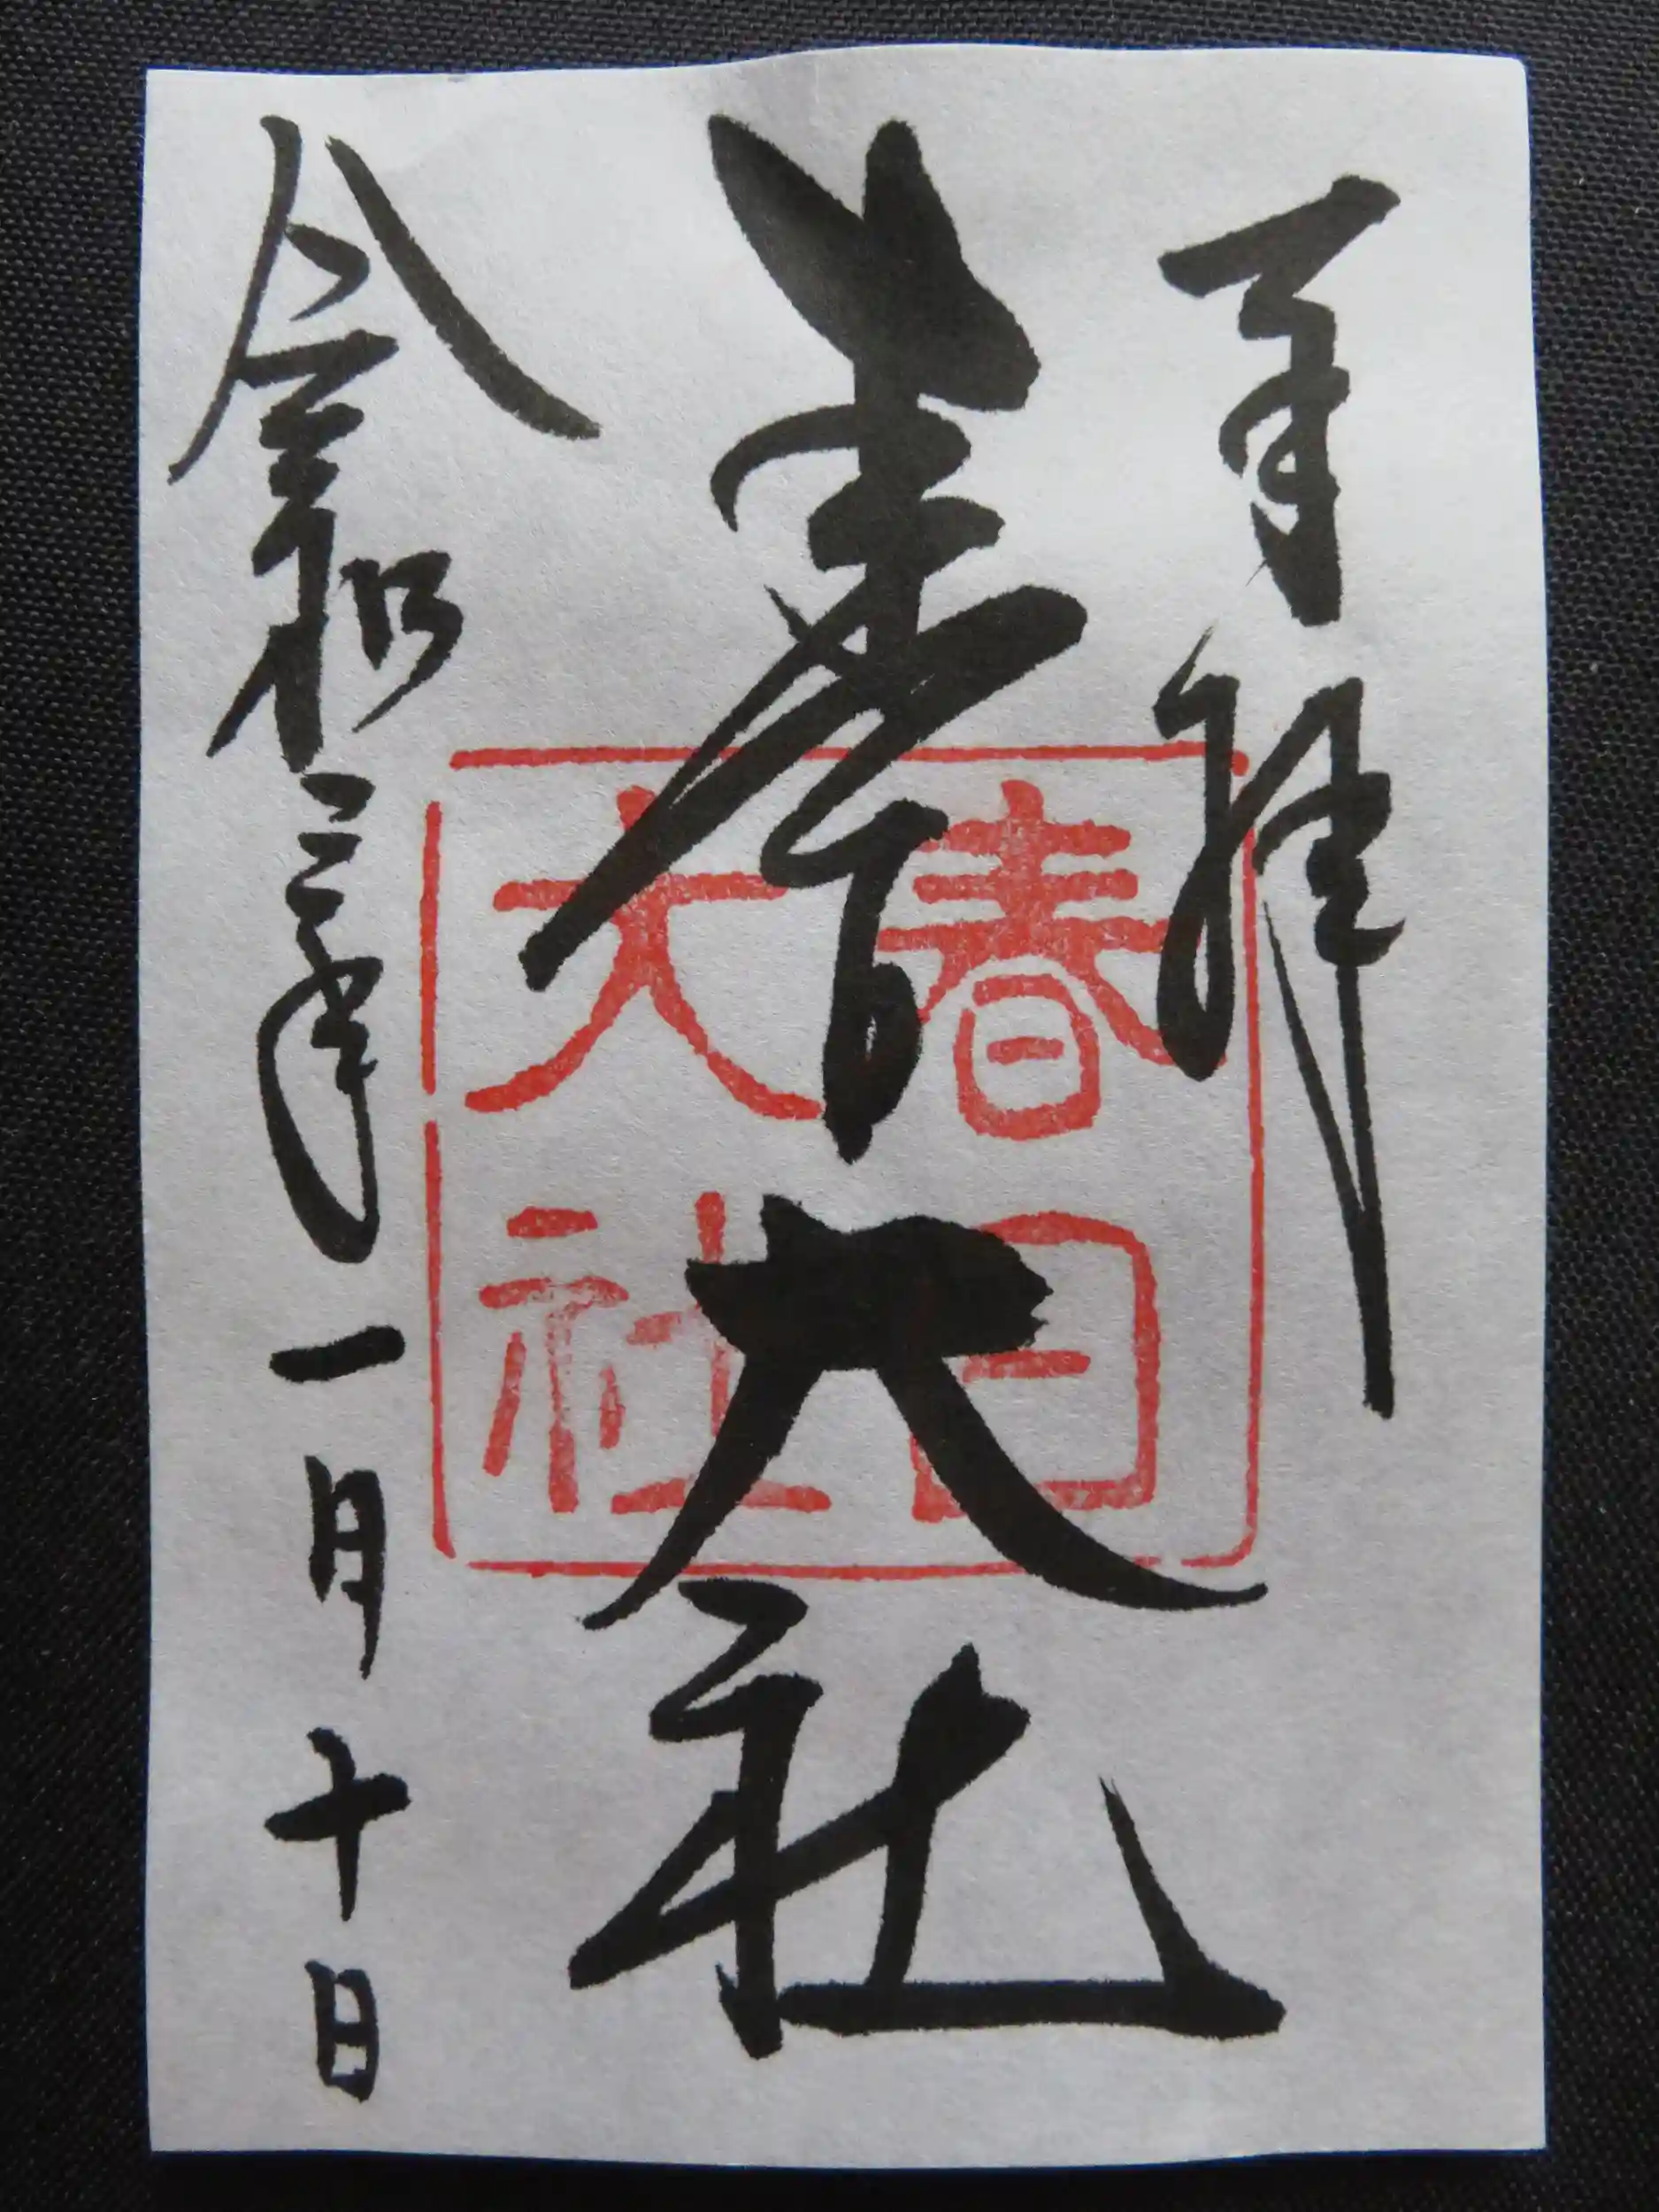 奉拝
春日大社
令和三年一月十日
春日
大社